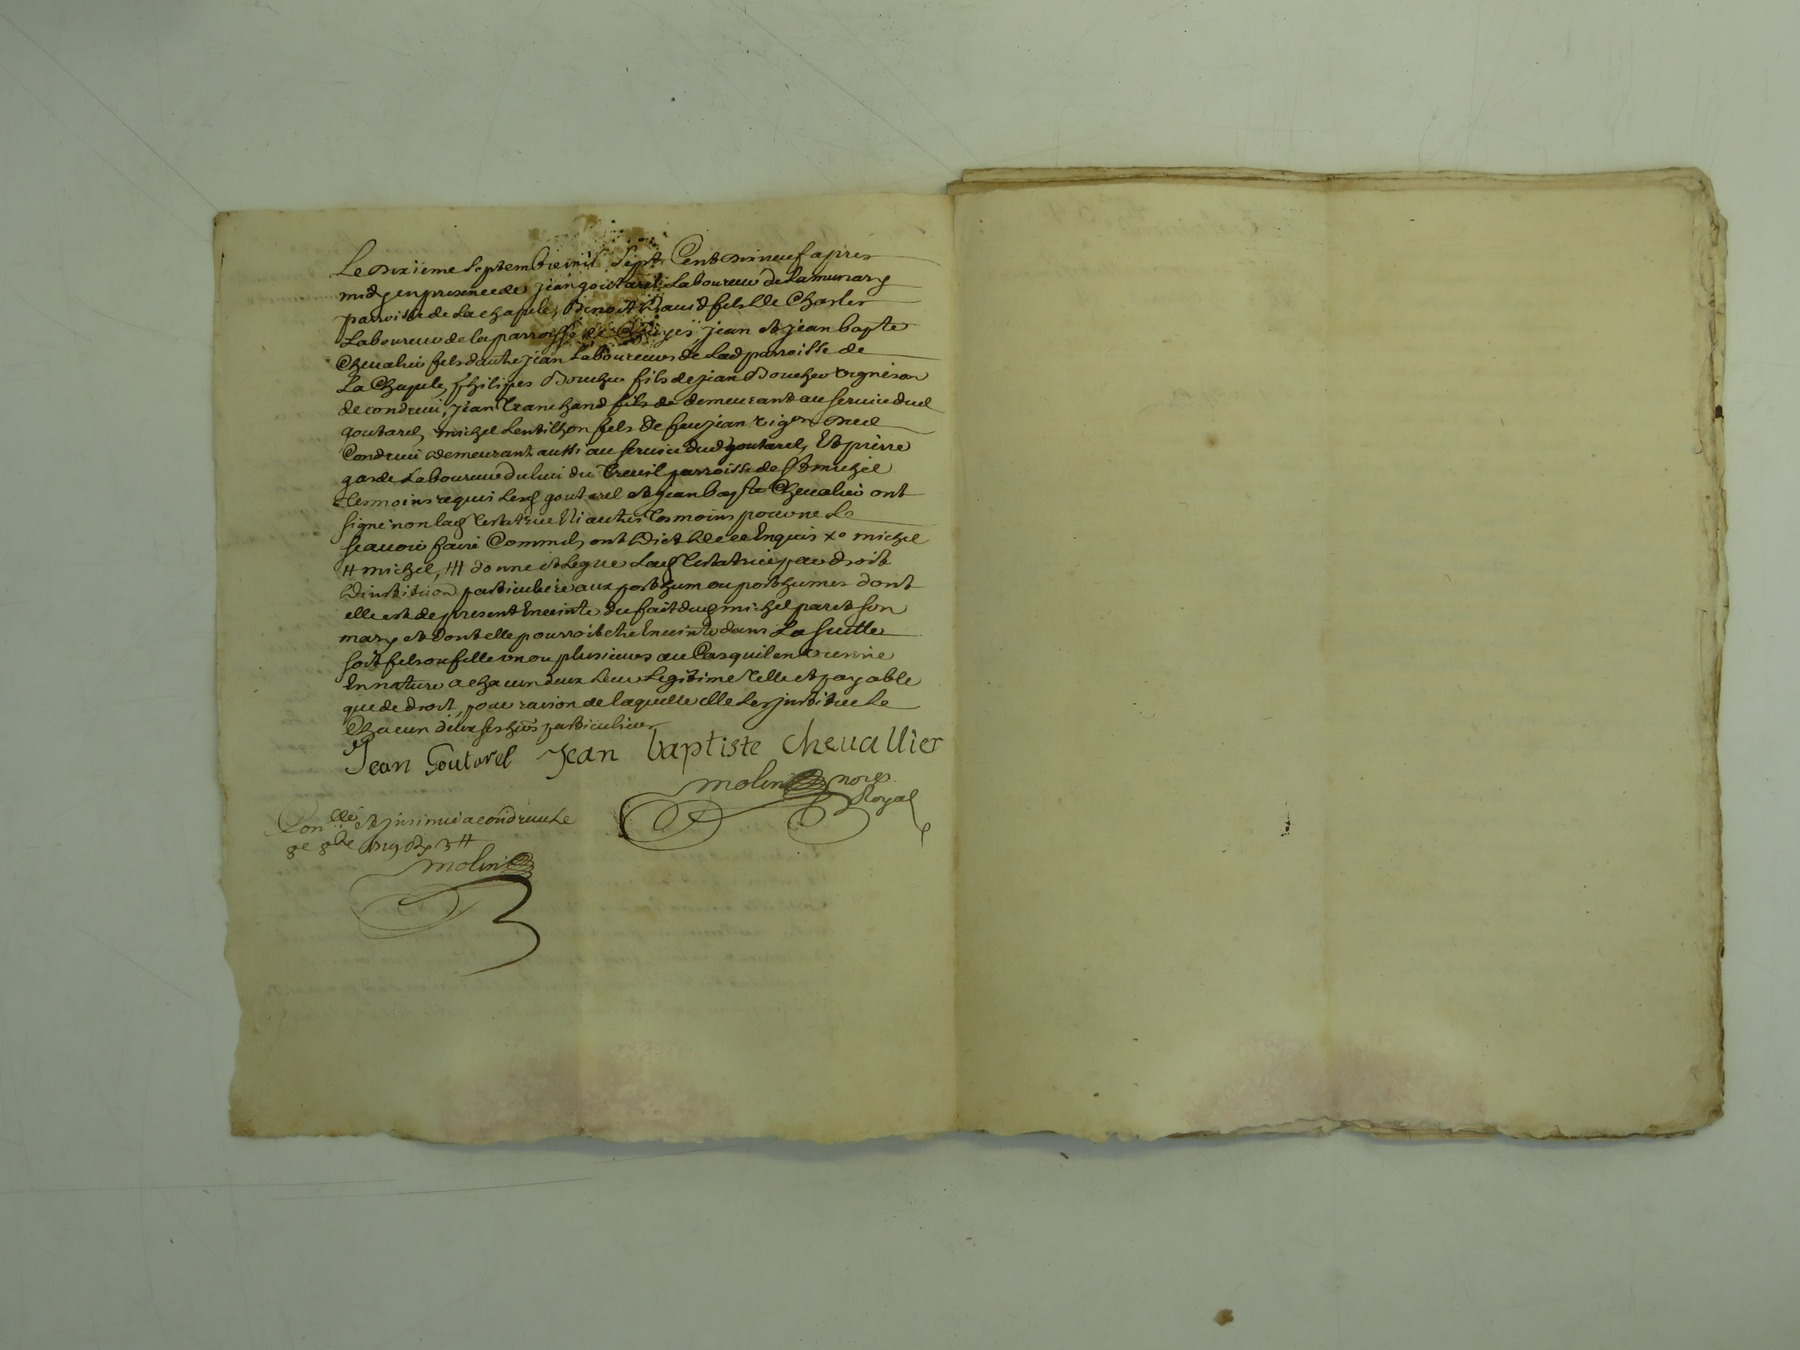 Le dixieme septembre mil sept Cent dix neuf apres
midy en presence de jean goutarel Laboureur de Lamuriary
parroisse de La chapele, Benoit David fils de Charles
Laboureur de la parroisse de Chuyes, jean et jean bapte
Chevalier fils d'autre jean Laboureurs de Lad parroisse de
La Chapele, philipes Boucher fils de jean Boucher vigneron
de condrieu, jean tranchand fils de demeurant au service dud
goutarel, michel Lentilhon fils de feu jean vigon dud
Condrieu demeurant aussi au service dud goutarel, Et pierre
garde Laboureur du lieu du Treuil parroisse de St michel
tesmoins requis Lesd goutarel et jean bapte Chevalier ont
signé non lad testatrice Ni autres tesmoins pour ne Le
scavoir faire Comme ils ont Dict de ce Enquis xo michel
# michel, ### donne et Legue Lad testatrice par droit
D'institution particuliere aux posthum ou posthumes dont
elle est de present Enceinte du fait dud michel paret son
mary et dont elle pourroit etre Enceinte dans La suitte
soit fils ou fille un ou plusieurs au Cas quil en vienne
En nature a chacun deux Leur Legitime telle et payable
que de droit, pour raison de laquelle elle Les institue Le
Chacun d'eux ses hers particuliers
Jean Goutarel Jean baptiste chevallier
molin nore
Royal
Conllé et insinué a condrieu Le
8e 8bre 1719
molin